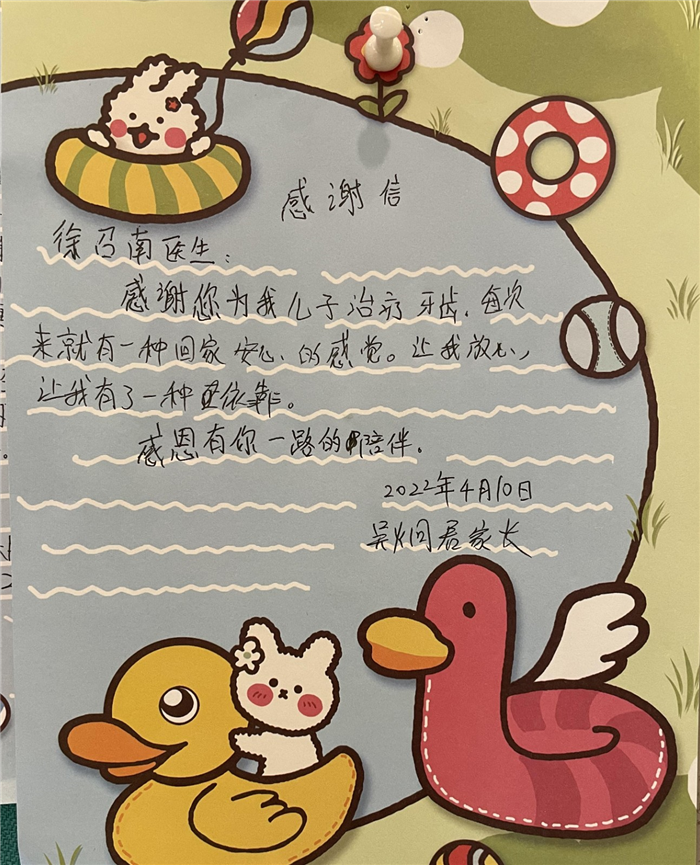 感谢信
徐召南医生:
感谢您为我儿子治疗牙齿，每次
来就有一种回家安心的感觉。让我放心，
让我有了一种依靠。
感恩有你一路的陪伴。
2022年4月10日
吴炯君家长